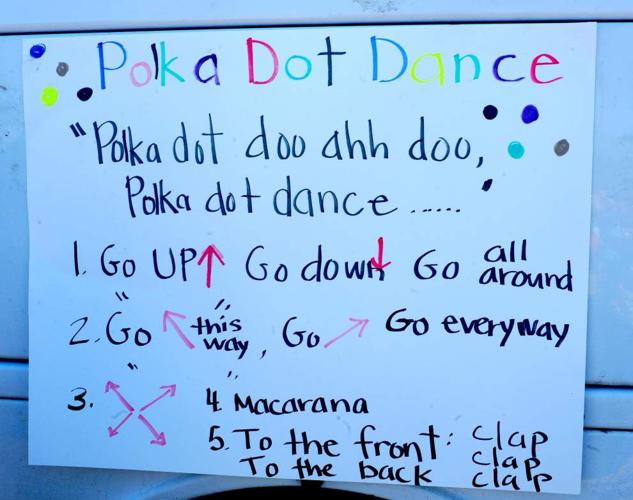 Polka Dot Dance
"Polka dot doo ahh doo,
Polka dot dance ......"
1. Go UP↑ Go down↓ Go all around
2. Go ↖ this way, Go ↗ Go everyway
3.
4. Macarana
5. To the front: clap
To the back clap
clap